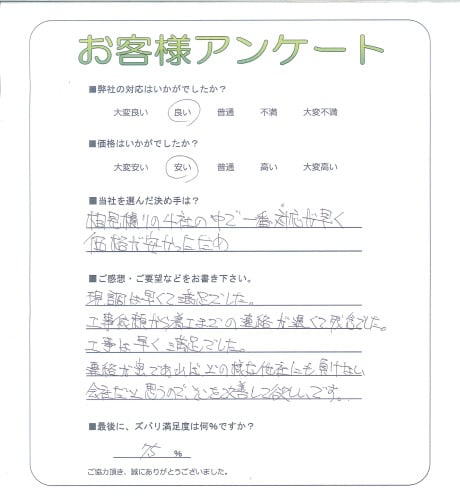 お客様アンケート
■弊社の対応はいかがでしたか？
大変良い 良い 普通 不満 大変不満
■価格はいかがでしたか？
大変安い 安い 普通 高い 大変高い
■当社を選んだ決め手は？
相見積りの4社の中で一番対応が早く
価格が安かったため
■ご感想・ご要望などをお書き下さい。
現調は早くて満足でした。
工事依頼から着工までの連絡が遅くて残念でした。
工事は早く満足でした。
連絡が早であればどの様な他社にも負けない
会社だと思うので、を改善して欲しいです。
■最後に、ズバリ満足度は何％ですか？
75 %
ご協力頂き、誠にありがとうございました。